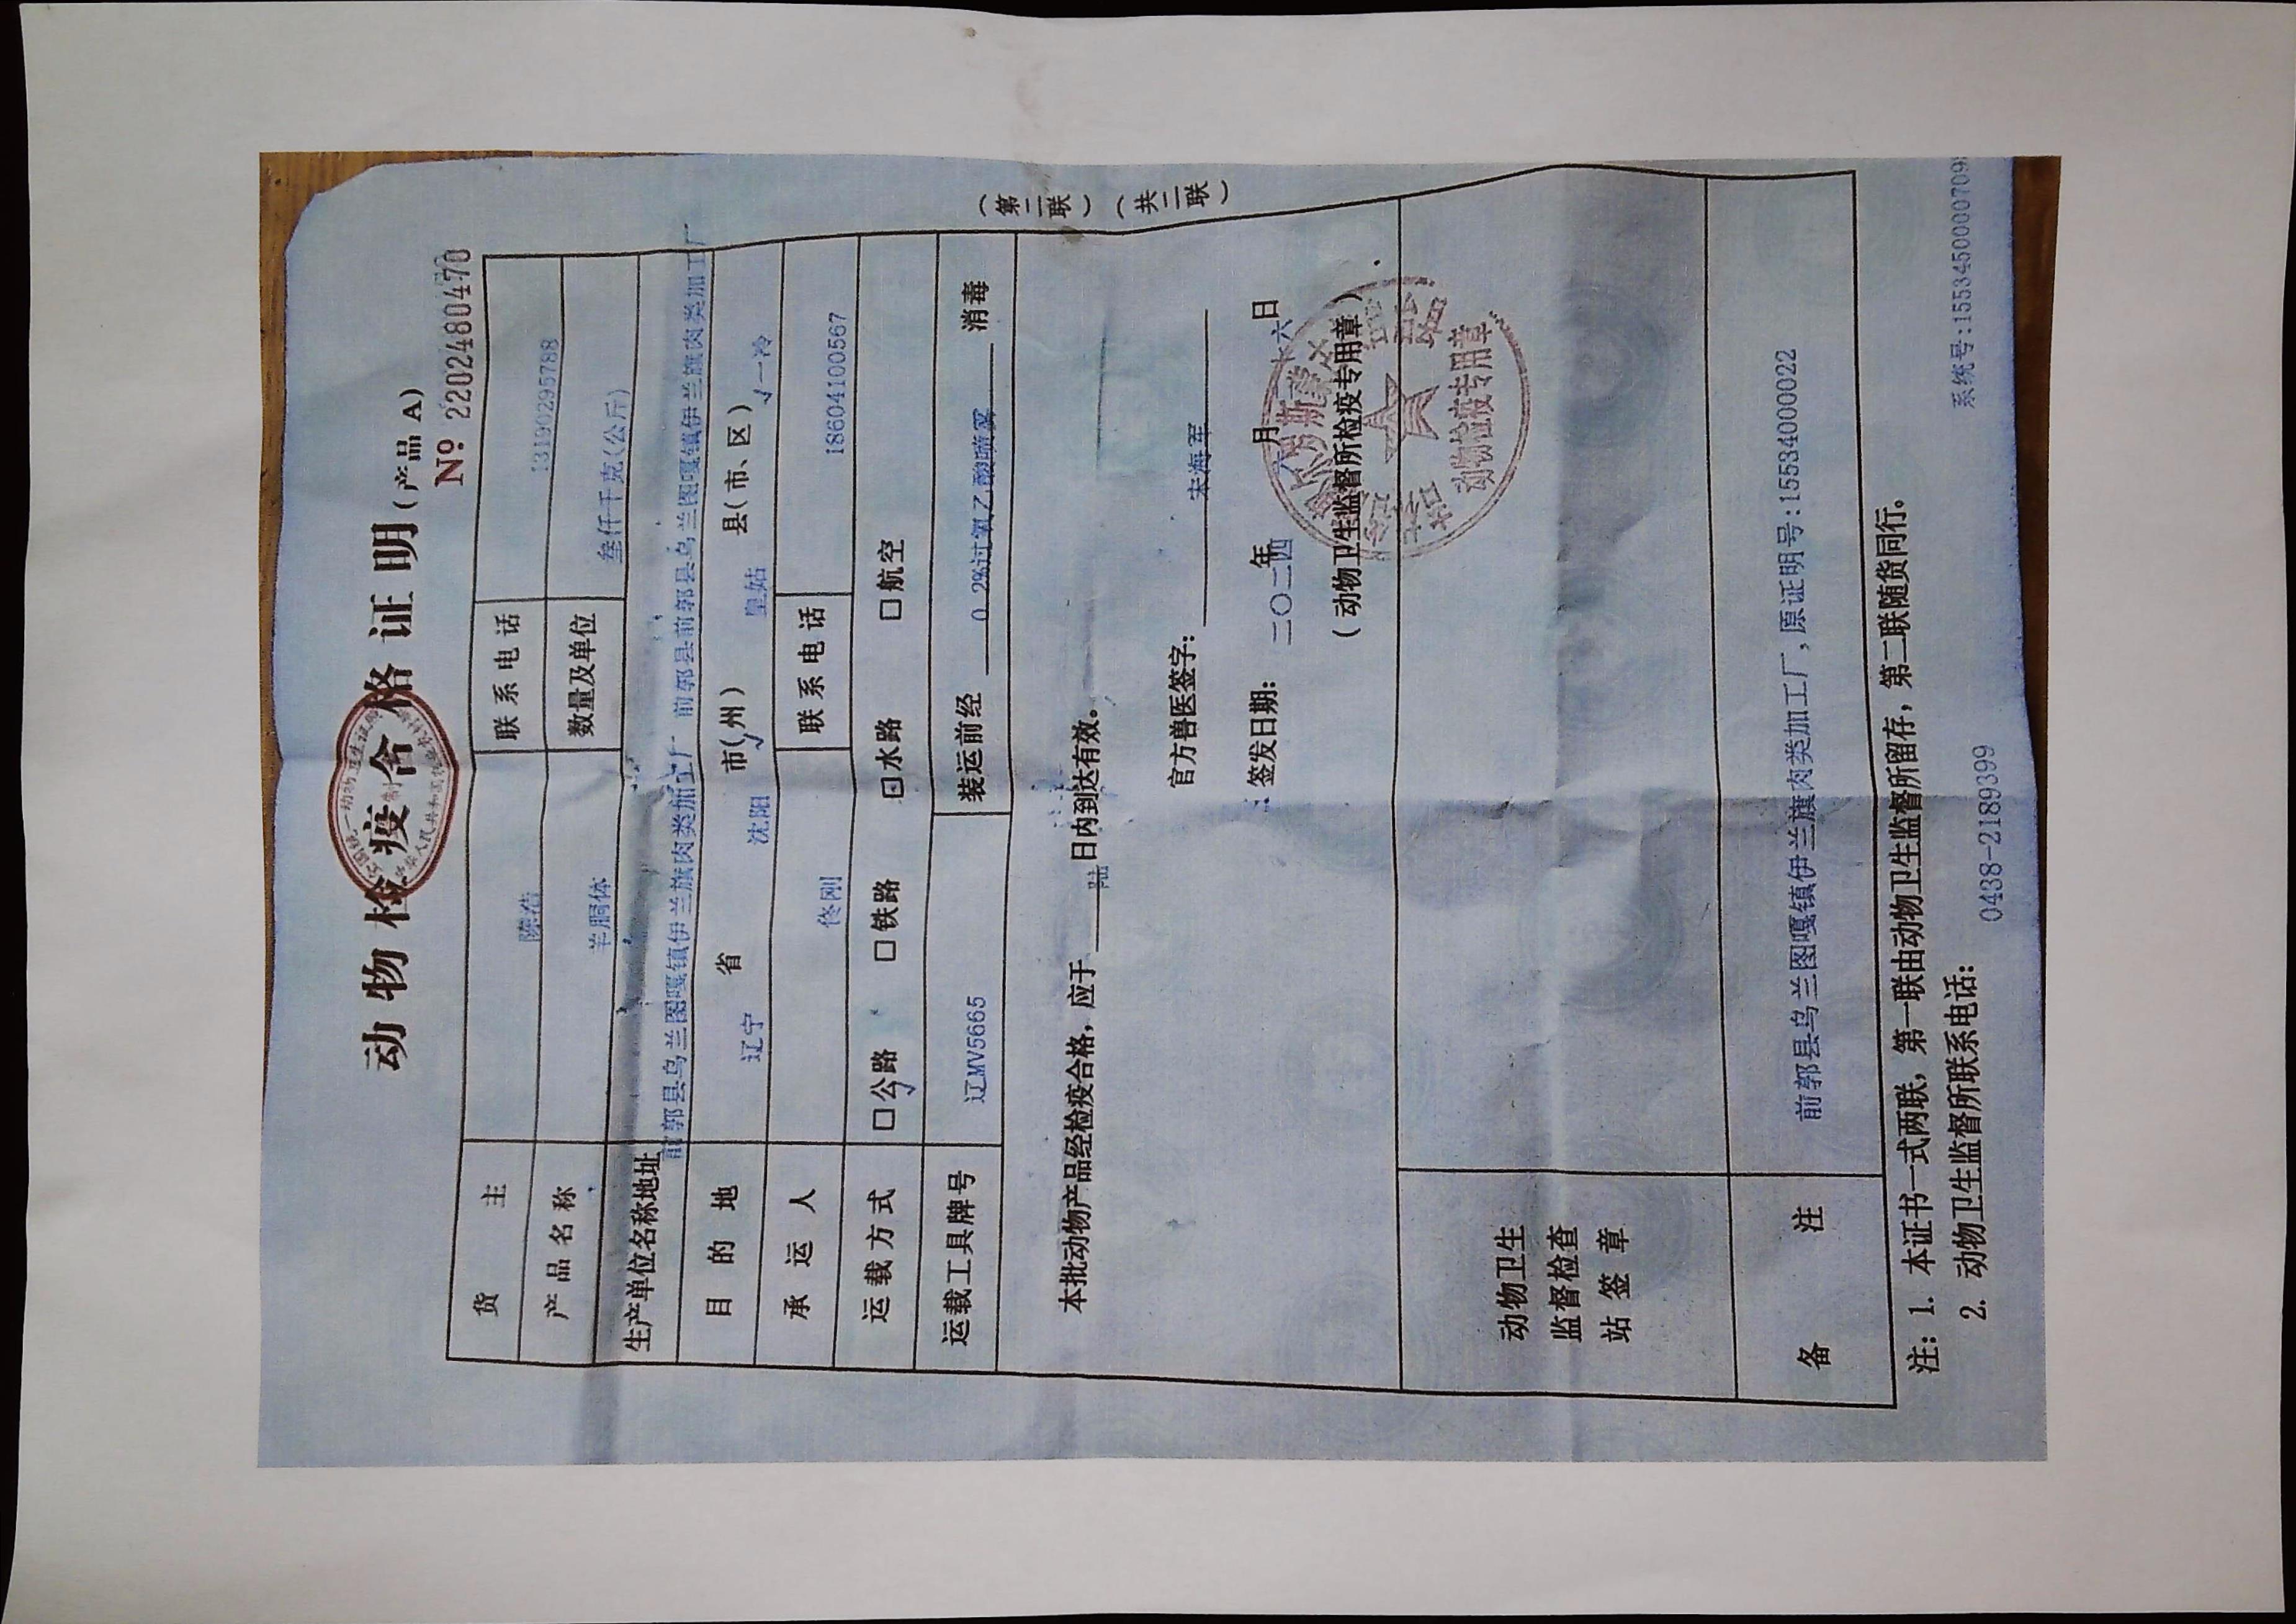 动物检疫合格证明(产品A)
№ 2202480470
货主 陈浩 联系电话 13190295788
产品名称 羊胴体 数量及单位 叁仟千克(公斤)
生产单位名称地址 前郭县乌兰图嘎镇伊兰旗肉类加工厂 前郭县前郭县乌兰图嘎镇伊兰旗肉类加工厂
目的地 辽宁 省 沈阳 市(州) 皇姑 县(市、区) 一冷
承运人 佟刚 联系电话 18604100567
运载方式 □公路 □铁路 □水路 □航空
运载工具牌号 辽MV5665 装运前经 0.2%过氧乙酸喷雾 消毒
本批动物产品经检疫合格,应于 陆 日内到达有效。
官方兽医签字: 宋海军
签发日期: 二〇二四年六月十六日
(动物卫生监督所检疫专用章)
动物检疫专用章
动物卫生
监督检查
站签章
备注 前郭县乌兰图嘎镇伊兰旗肉类加工厂,原证明号:1553400022
注:1. 本证书一式两联,第一联由动物卫生监督所留存,第二联随货同行。
2. 动物卫生监督所联系电话: 0438-2189399
系统号:155345000709
(第二联)
(共二联)